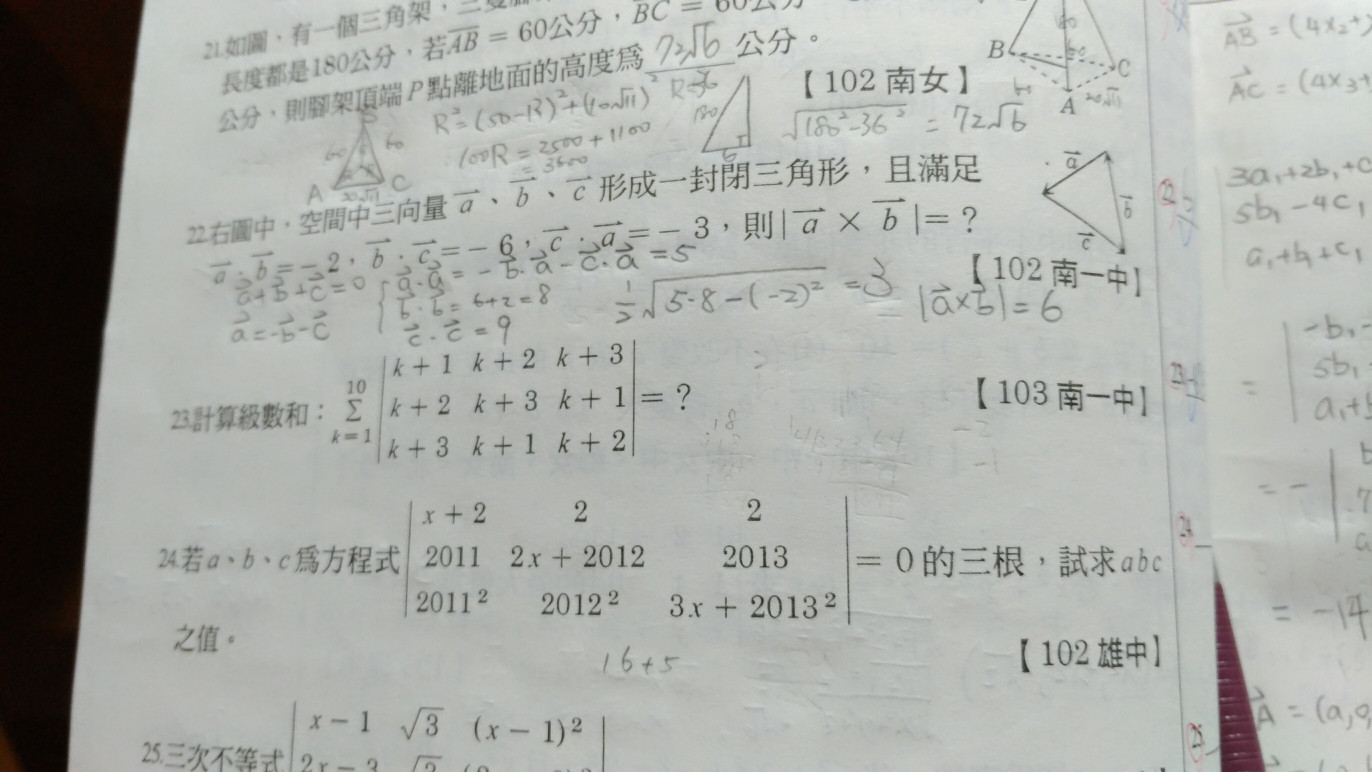 21.如圖,有一個三角架,三隻腳
長度都是180公分,若AB = 60公分,BC = 60公分
公分,則腳架頂端P點離地面的高度爲 72√6 公分。
【102 南女】
R²=(50-R)²+(10√11)²
100R = 2500+1100
= 3600
R=36
180
√180²-36² = 72√6
A C
60 60
20√11
B C
A 20√11
22.右圖中,空間中三向量 a、b、c 形成一封閉三角形,且滿足
a·b=-2,b·c=-6,c·a=-3,則|a × b|= ?
【102 南一中】
a b c
a+b+c=0
a=-b-c
a·a = -b·a-c·a =5
b·b = 6+2=8
c·c = 9
1/2 √5·8-(-2)² =3
|a×b|=6
23.計算級數和: 10 Σ k=1 | k+1 k+2 k+3 |
| k+2 k+3 k+1 | = ?
| k+3 k+1 k+2 |
【103 南一中】
| x+2 2 2 |
24.若a、b、c爲方程式 | 2011 2x+2012 2013 | = 0的三根,試求abc
| 2011² 2012² 3x+2013² |
之值。
【102 雄中】
16+5
25.三次不等式 | x-1 √3 (x-1)² |
AB = (4x2
AC = (4x3
3a₁+2b₁+c
5b₁-4c₁
a₁+b₁+c₁
22
23
24
25
5b₁
= -14
A = (a,0